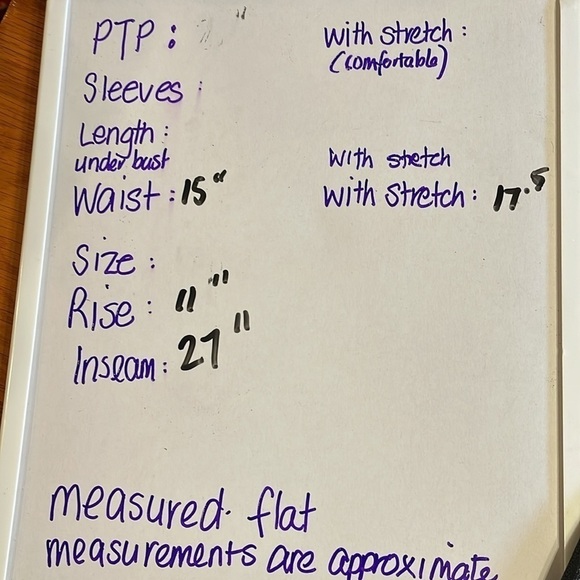 PTP: "
With stretch:
(comfortable)
Sleeves:
Length:
under bust
With stetch
Waist: 15"
With Stretch: 17.5
Size:
Rise: 11"
Inseam: 27"
measured. flat
measurements are approximate